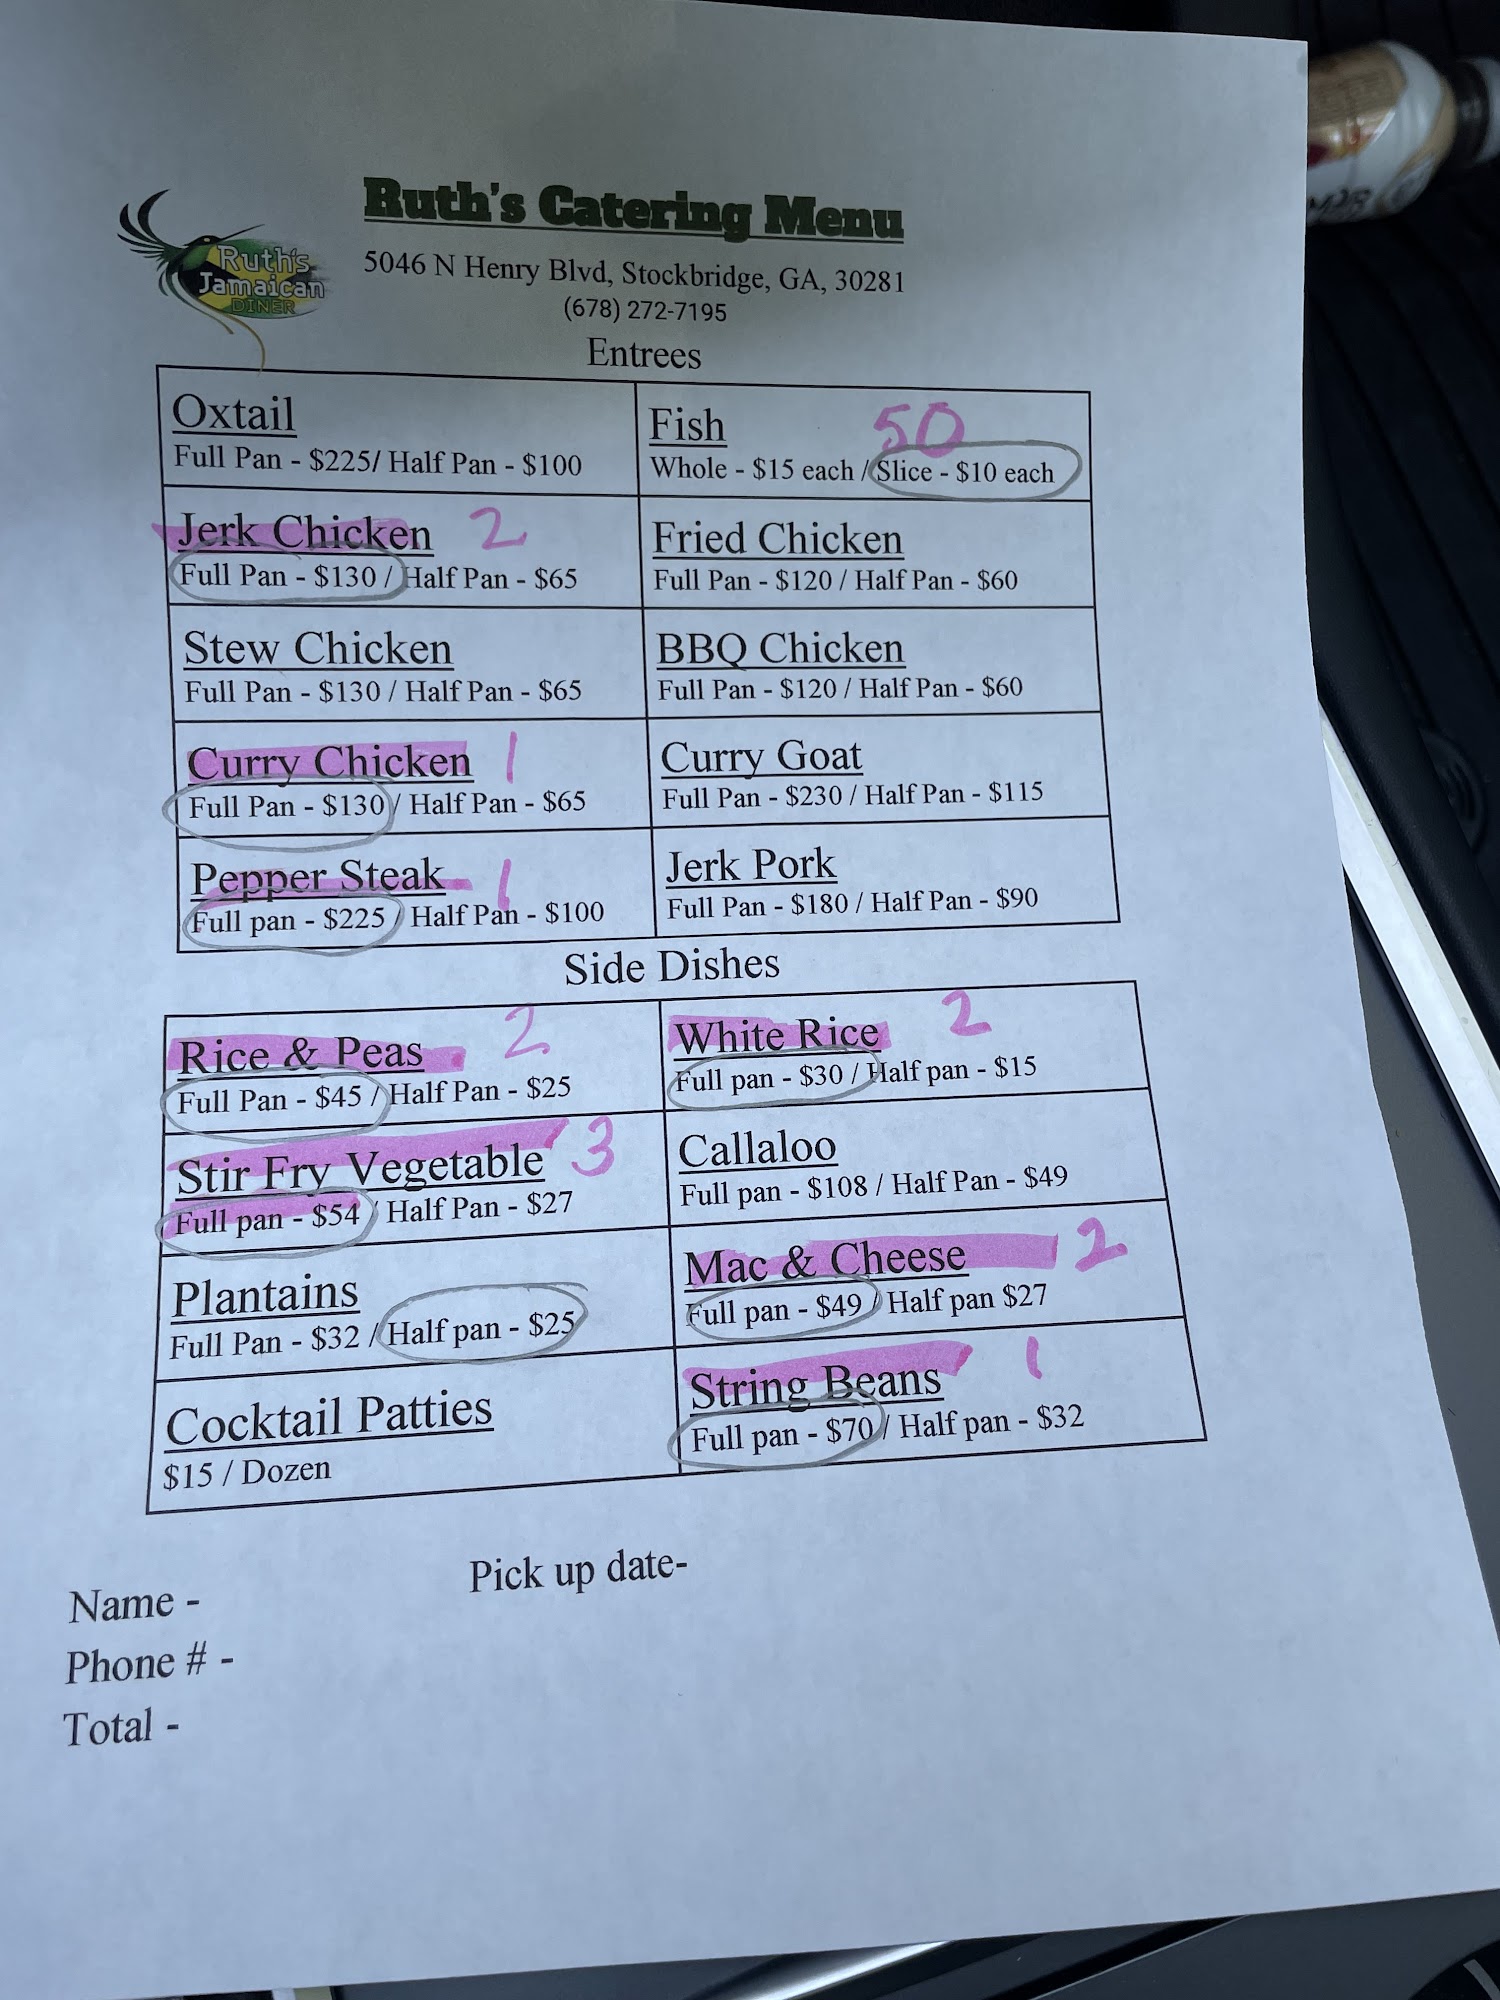 Ruth's Catering Menu
Ruth's
Jamaican
DINER
5046 N Henry Blvd, Stockbridge, GA, 30281
(678) 272-7195
Entrees
Oxtail
Full Pan - $225/ Half Pan - $100
Fish 50
Whole - $15 each / Slice - $10 each
Jerk Chicken 2
Full Pan - $130 / Half Pan - $65
Fried Chicken
Full Pan - $120 / Half Pan - $60
Stew Chicken
Full Pan - $130 / Half Pan - $65
BBQ Chicken
Full Pan - $120 / Half Pan - $60
Curry Chicken 1
Full Pan - $130 / Half Pan - $65
Curry Goat
Full Pan - $230 / Half Pan - $115
Pepper Steak 1
Full pan - $225 / Half Pan - $100
Jerk Pork
Full Pan - $180 / Half Pan - $90
Side Dishes
Rice & Peas 2
Full Pan - $45 / Half Pan - $25
White Rice 2
Full pan - $30 / Half pan - $15
Stir Fry Vegetable 3
Full pan - $54 / Half Pan - $27
Callaloo
Full pan - $108 / Half Pan - $49
Plantains
Full Pan - $32 / Half pan - $25
Mac & Cheese 2
Full pan - $49 / Half pan $27
Cocktail Patties
$15 / Dozen
String Beans 1
Full pan - $70 / Half pan - $32
Pick up date-
Name -
Phone # -
Total -